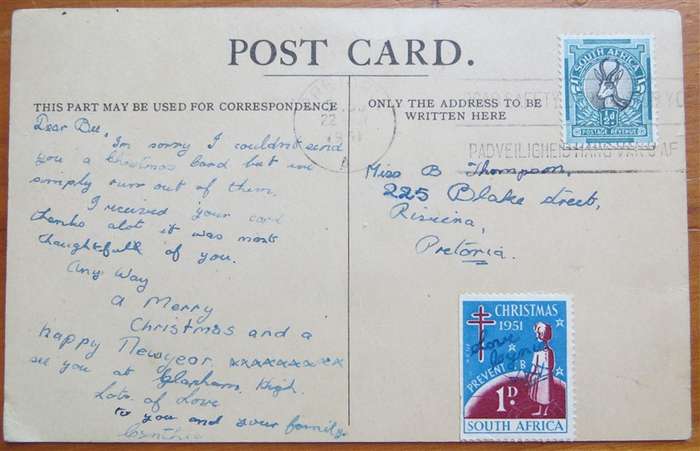 POST CARD.
THIS PART MAY BE USED FOR CORRESPONDENCE
ONLY THE ADDRESS TO BE
WRITTEN HERE
Dear Bee,
I'm sorry I couldn't send
you a Christmas Card but we
simply run out of them.
I received your card
thanks alot it was most
thaughtfull of you.
Any Way
a Merry
Christmas and a
happy New year. xxxxxxxxx
see you at Clapham High
Lots of Love
to you and your family.
Cynthia
Miss B Thompson,
225 Blake street,
Riviera,
Pretoria.
22
1951
PADVEILIGHEID
SOUTH AFRICA
½d
POSTAGE REVENUE
CHRISTMAS
1951
Love
PREVENT T.B.
1D.
SOUTH AFRICA